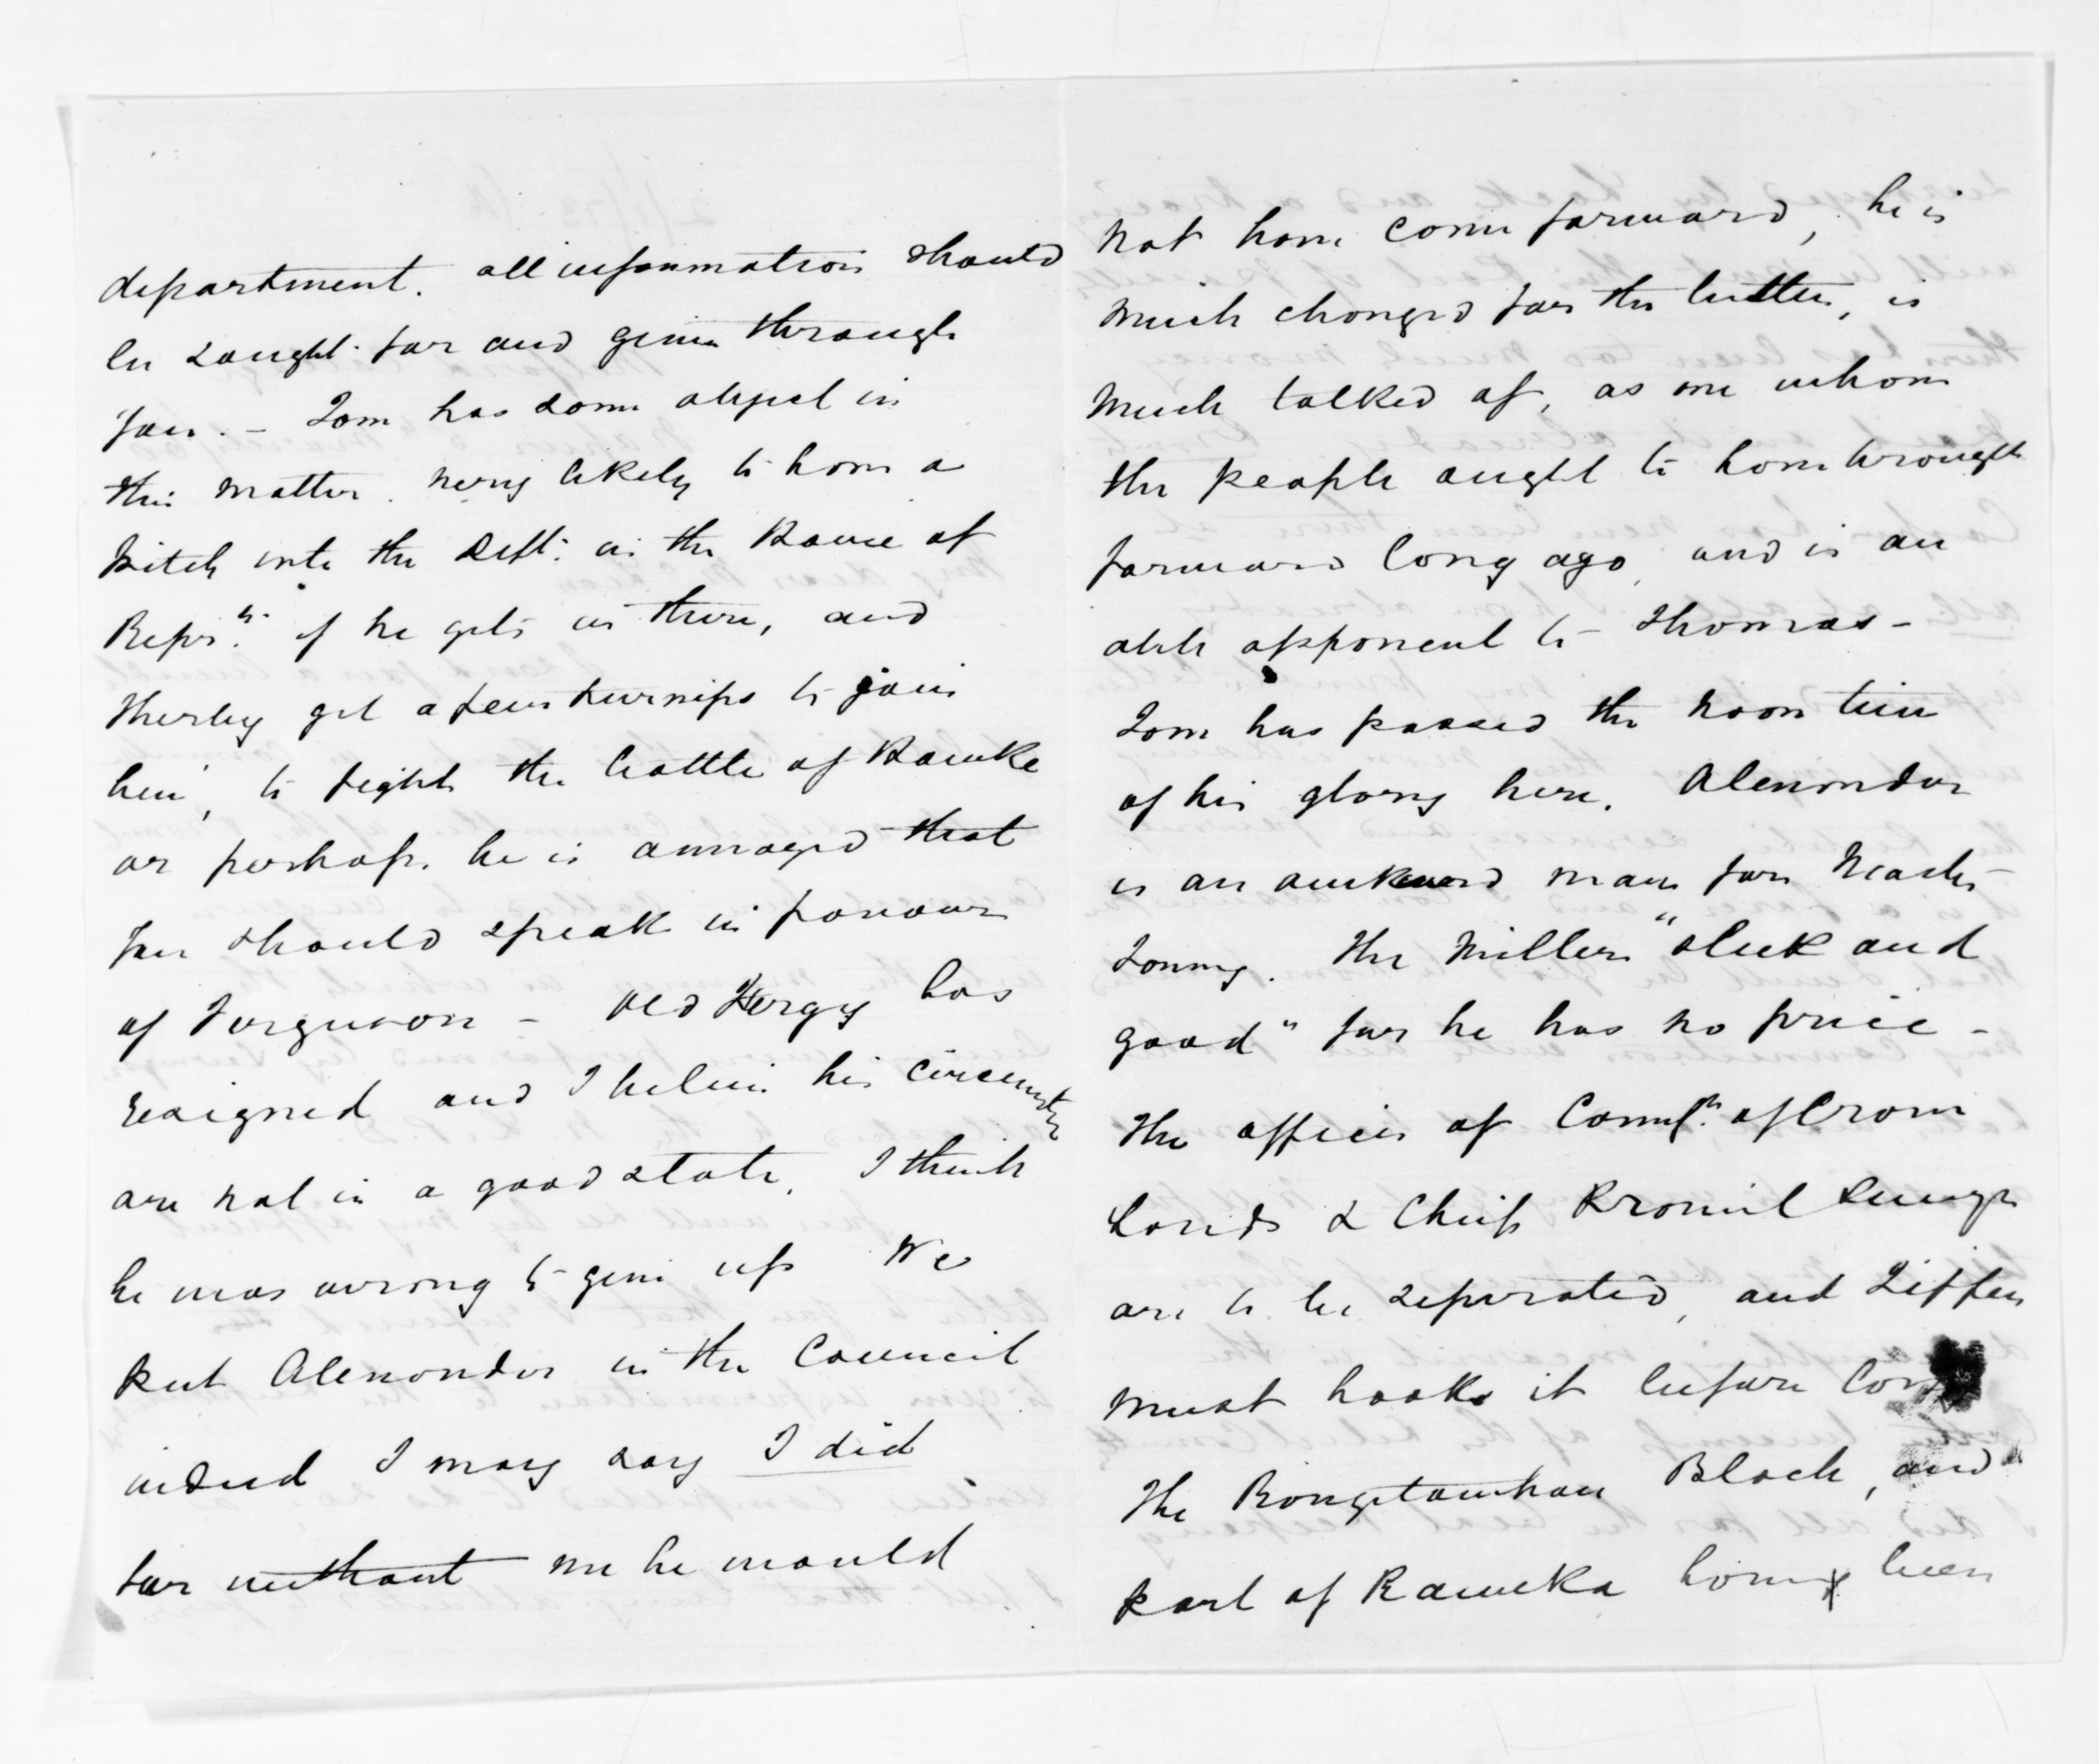 department. all information should
be sought for and given through
you. - Tom has some object in
this matter. very likely to have a
pitch into the Deptt. in the House of
Reprs. if he gets in there, and
thereby get a few turnips to join
him, to fight the battle of
or perhaps he is annoyed that
you should speak in favour
of Ferguson - Old Fergy has
resigned and I believe his circumstces
are not in a good state, I think
he was wrong to give up We
put Alexander in the Council
indeed I may say I did
for without me he would
not have come forward, he is
much changed for the better, is
much talked of, as one whom
the people ought to have brought
forward long ago, and is an
able opponent to Thomas -
Tom has passed the noon time
of his glory here. Alexander
is an awkward man for Master
Tommy. The Millers "sleek and
good" for he has no price -
The offices of Commr. of Crown
Lands & Chief Provincl Survyr
are to be separated, and
must hook it before
The Block, and
part of having been